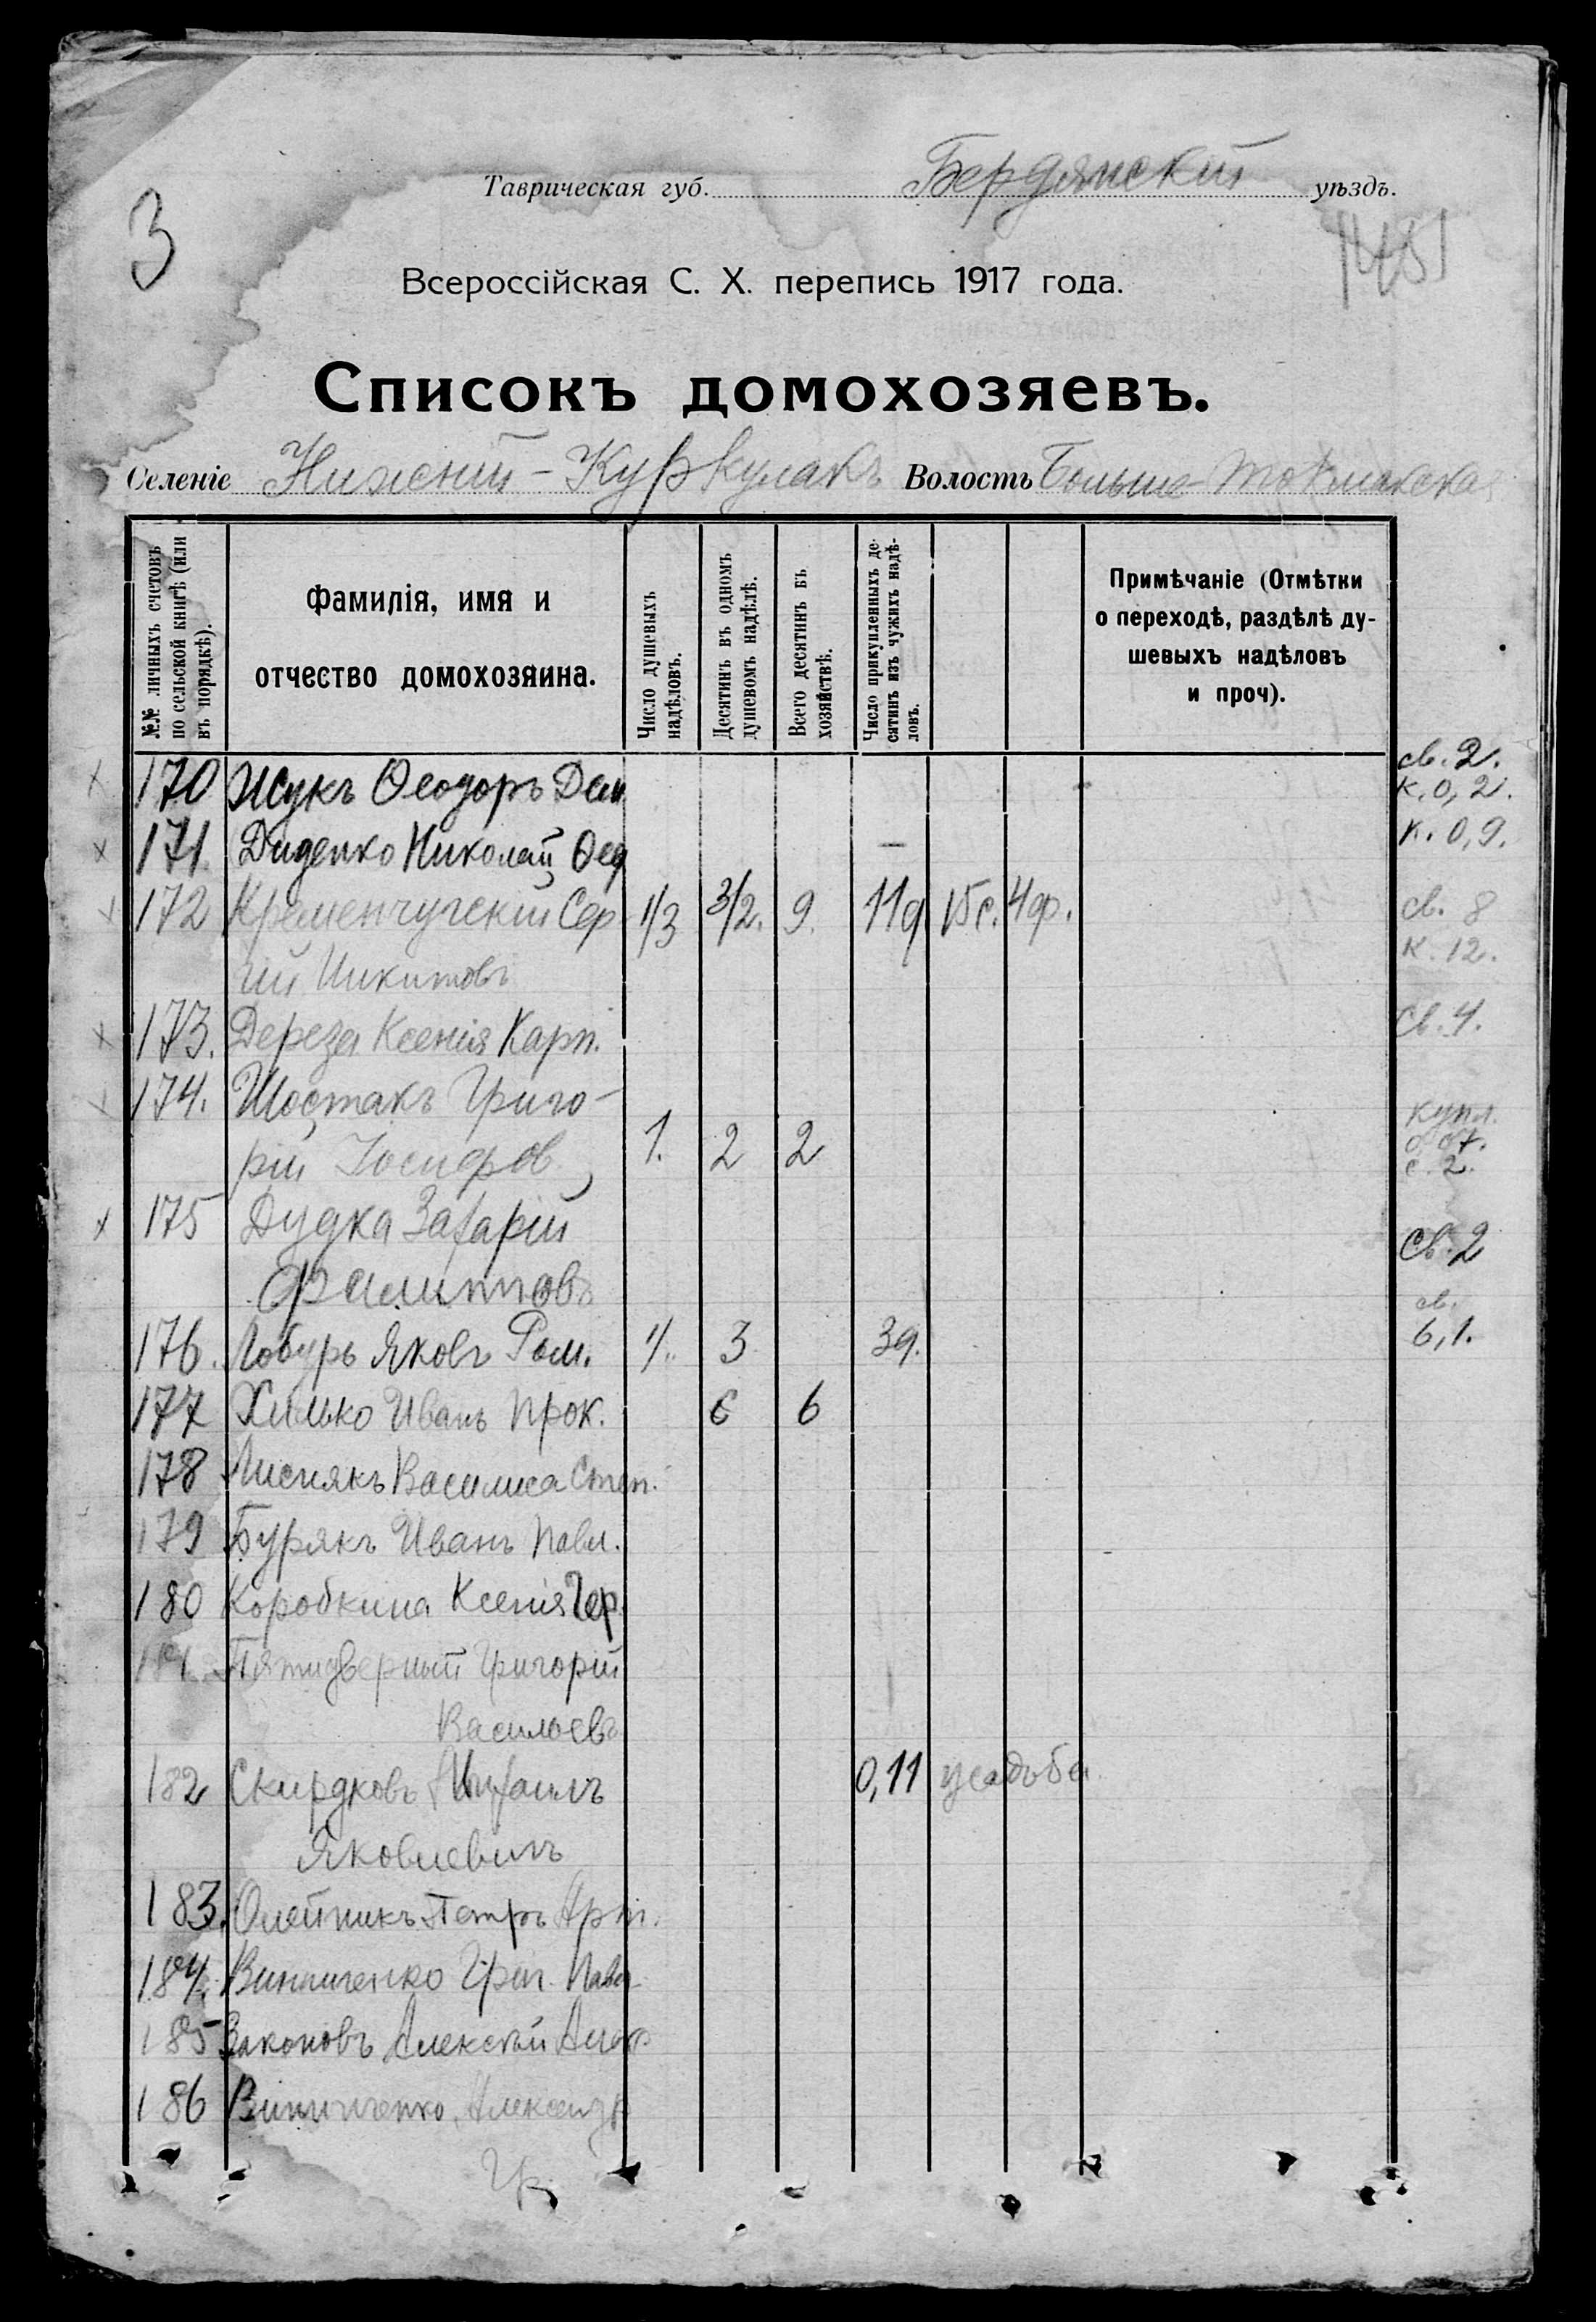 Таврическая губ. Бердянский уѣздъ.
3
145
Всероссійская С. Х. перепись 1917 года.
Списокъ домохозяевъ.
Селеніе Нижній-Куркулакъ Волость Больше-Токмакская
№№ личныхъ счетовъ
по сельской книгѣ (или
въ порядкѣ).
Фамилія, имя и
отчество домохозяина.
Число душевыхъ
надѣловъ.
Десятинъ въ одномъ
душевомъ надѣлѣ.
Всего десятинъ въ
хозяйствѣ.
Число прикупленныхъ де-
сятинъ изъ чужихъ надѣ-
ловъ.
Примѣчаніе (Отмѣтки
о переходѣ, раздѣлѣ ду-
шевыхъ надѣловъ
и проч).
170 Жукъ Ѳеодоръ Дем св. 2.
к. 0,2.
171. Диденко Николай Ѳед — к. 0,9.
172 Кременчугскій Сер- 1/3 3/2. 9. 11д 15с. 4ф. св. 8
гій Никитовъ к. 12.
173. Дереза Ксенія Карп. св. 4.
174. Шостакъ Григо- купл.
рій Іосифов 1. 2 2 с. 2.
175 Дудка Захарій св. 2
Филипповъ
176. Лобурь Яковъ Ром. 1. 3 3д. св.
6,1.
177 Хилько Иванъ Прок. 6 6
178 Лиснякъ Василиса Степ.
179 Бурякъ Иванъ Павл.
180 Коробкина Ксенія Гер.
181. Пятидверный Григорій
Васильевъ
182 Скирдковъ Михаилъ 0,11 усадьба
Яковлевичъ
183. Олейникъ Петръ Арт.
184. Винниченко Григ. Павл
185 Законовъ Алексѣй
186 Винниченко Александр
Гр.